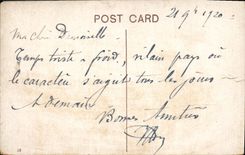 POST CARD
21 9bre 1920
Ma chère Demoiselle
Temps triste & froid, vilain pays où
le caractère s'aigrit tous les jours —
A demain
Bonnes Amitiés